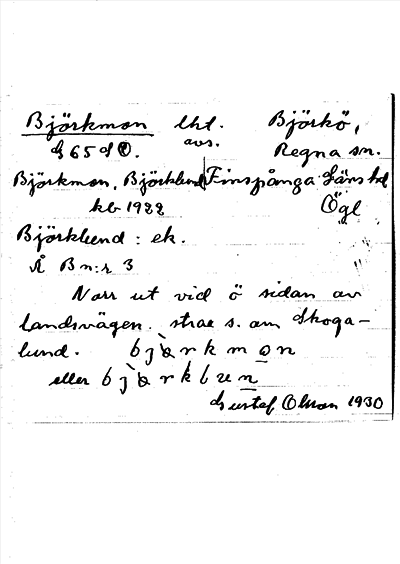 Björkmon lht. Björkö,
avs.
G 65 d Ö. Regna sn.
Björkmon, Björklund Finspånga läns hd
kb 1922 Ögl
Björklund : ek.
Å B n:r 3
Norr ut vid ö sidan av
landsvägen. strax s. om Skoga-
lund. bjǫ̀rkmon
eller bjǫ̀rklun
Gustaf Olson 1930